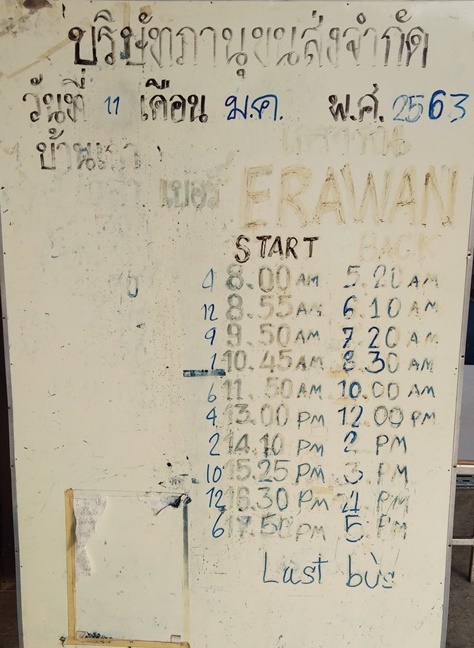 บริษัทภานุขนส่งจำกัด
วันที่ 11 เดือน ม.ค. พ.ศ. 2563
ERAWAN
START BACK
4 8.00 AM 5.20 AM
12 8.55 AM 6.10 AM
9 9.50 AM 7.20 AM
1 10.45 AM 8.30 AM
6 11.50 AM 10.00 AM
4 13.00 PM 12.00 PM
2 14.10 PM 2 PM
10 15.25 PM 3 PM
12 16.30 PM 4 PM
6 17.50 PM 5 PM
Last bus